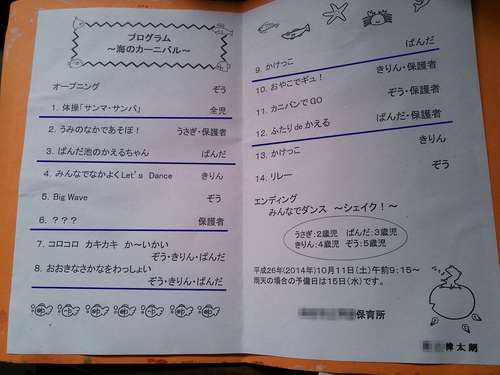 プログラム
～海のカーニバル～
オープニング ぞう
1. 体操「サンマ・サンバ」 全児
2. うみのなかであそぼ！ うさぎ・保護者
3. ぱんだ池のかえるちゃん ぱんだ
4. みんなでなかよくLet's Dance きりん
5. Big Wave ぞう
6. ？？？ 保護者
7. コロコロ カキカキ か～いかい
ぞう・きりん・ぱんだ
8. おおきなさかなをわっしょい
ぞう・きりん・ぱんだ
9. かけっこ ぱんだ
10. おやこでギュ！ きりん・保護者
11. カニパンでGO ぞう・保護者
12. ふたりdeかえる ぱんだ・保護者
13. かけっこ きりん
14. リレー ぞう
エンディング
みんなでダンス ～シェイク！～
うさぎ：2歳児 ぱんだ：3歳児
きりん：4歳児 ぞう：5歳児
平成26年(2014年)10月11日(土)午前9:15～
雨天の場合の予備日は15日(水)です。
保育所
太朗